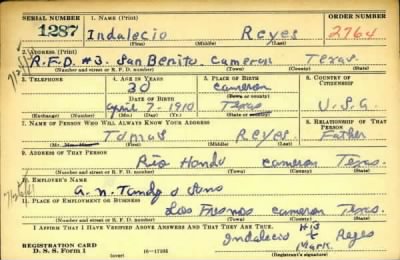 SERIAL NUMBER 1. NAME (Print) ORDER NUMBER
1287 Indalecio Reyes 2764
(First) (Middle) (Last)
2. ADDRESS (Print)
R.F.D. #3. San Benito. Cameron Texas.
(Number and street or R. F. D. number) (Town) (County) (State)
3. TELEPHONE 4. AGE IN YEARS 5. PLACE OF BIRTH 6. COUNTRY OF CITIZENSHIP
30 Cameron
DATE OF BIRTH (Town or county)
April 7. 1910 Texas U.S.A.
(Exchange) (Number) (Mo.) (Day) (Yr.) (State or country)
7. NAME OF PERSON WHO WILL ALWAYS KNOW YOUR ADDRESS 8. RELATIONSHIP OF THAT PERSON
Tomas Reyes. Father
(Mr., Mrs., Miss) (First) (Middle) (Last)
9. ADDRESS OF THAT PERSON
Rio Hondo Cameron Texas.
(Number and street or R. F. D. number) (Town) (County) (State)
10. EMPLOYER'S NAME
A. N. Tandy & Sons
11. PLACE OF EMPLOYMENT OR BUSINESS
Los Fresnos Cameron Texas.
(Number and street or R. F. D. number) (Town) (County) (State)
I AFFIRM THAT I HAVE VERIFIED ABOVE ANSWERS AND THAT THEY ARE TRUE.
His
Indalecio x Reyes
Mark.
REGISTRATION CARD
D. S. S. Form 1 (over) 16—17105 (Registrant's signature)